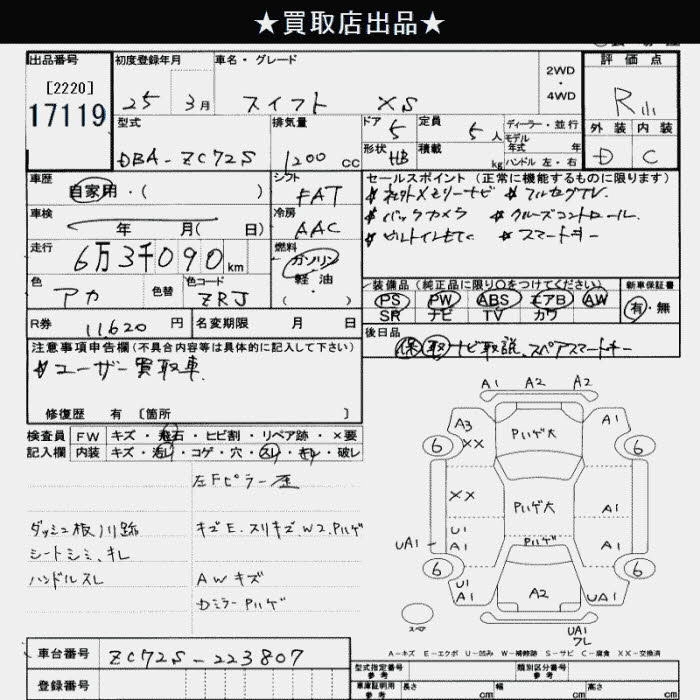 ★買取店出品★
出品番号
[2220]
17119
初度登録年月
25 3月
車名・グレード
スイフト XS
2WD
・
4WD
評価点
R
外装 内装
D C
型式
DBA-ZC72S
排気量
1200 cc
ドア 5
形状 HB
定員 5 人
積載 kg
ディーラー・並行
モデル
年式 年
ハンドル 左・右
車歴
自家用・( )
シフト
FAT
車検
年 月( 日)
冷房
AAC
走行
6万3千090 km
燃料
ガソリン
軽油
・
( )
色
アカ
色替
色コード
ZRJ
R券 11,620 円
名変期限 月 日
セールスポイント (正常に機能するものに限ります)
社外メモリーナビ フルセグTV.
バックカメラ クルーズコントロール.
ビルトインETC スマートキー
装備品(純正品に限り○をつけてください)
PS PW ABS エアB AW
SR ナビ TV カワ
新車保証書
有・無
後日品
保 取 ナビ取説、スペアスマートキー
注意事項申告欄(不具合内容等は具体的に記入して下さい)
ユーザー買取車.
修復歴 有 〔箇所 〕
検査員 FW キズ・飛石・ヒビ割・リペア跡・×要
記入欄 内装 キズ・汚レ・コゲ・穴・スレ・キレ・破レ
左Fピラー
ダッシュ板 跡
シートシミ、キレ
ハンドルスレ
キズE.スリキズ.W2.Pハゲ
AWキズ
Pハゲ
A1 A2 A2
A3 XX Pハゲ大 A1
6 6
XX Pハゲ大 A1
U1
UA1 A1 A1
6 6
U1
A1 A2 UA1
UA1
ワレ
A-キズ E-エクボ U-凹み W-補修跡 S-サビ C-腐食 XX-交換済
車台番号 ZC72S-223807
登録番号
型式指定番号 類別区分番号
車庫証明用 長さ 幅 高さ
参考 cm cm cm